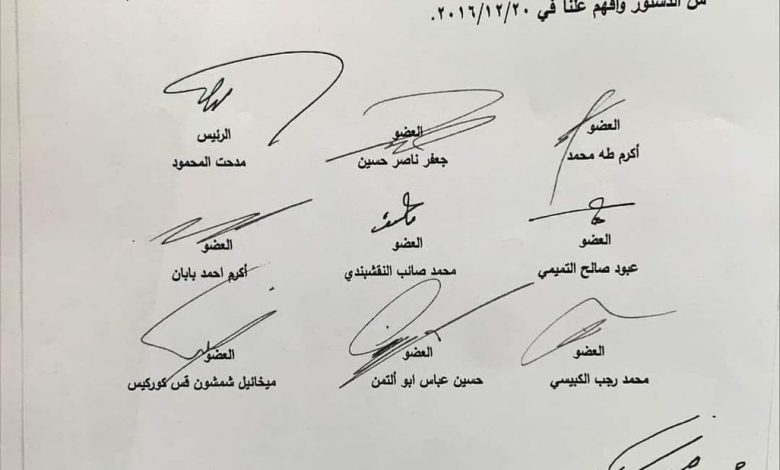 من الدستور وافهم علناً في ٢٠١٦/١٢/٢٠.
العضو
أكرم طه محمد
العضو
جعفر ناصر حسين
الرئيس
مدحت المحمود
العضو
عبود صالح التميمي
العضو
محمد صائب النقشبندي
العضو
أكرم احمد بابان
العضو
محمد رجب الكبيسي
العضو
حسين عباس ابو ألتمن
العضو
ميخائيل شمشون قس كوركيس